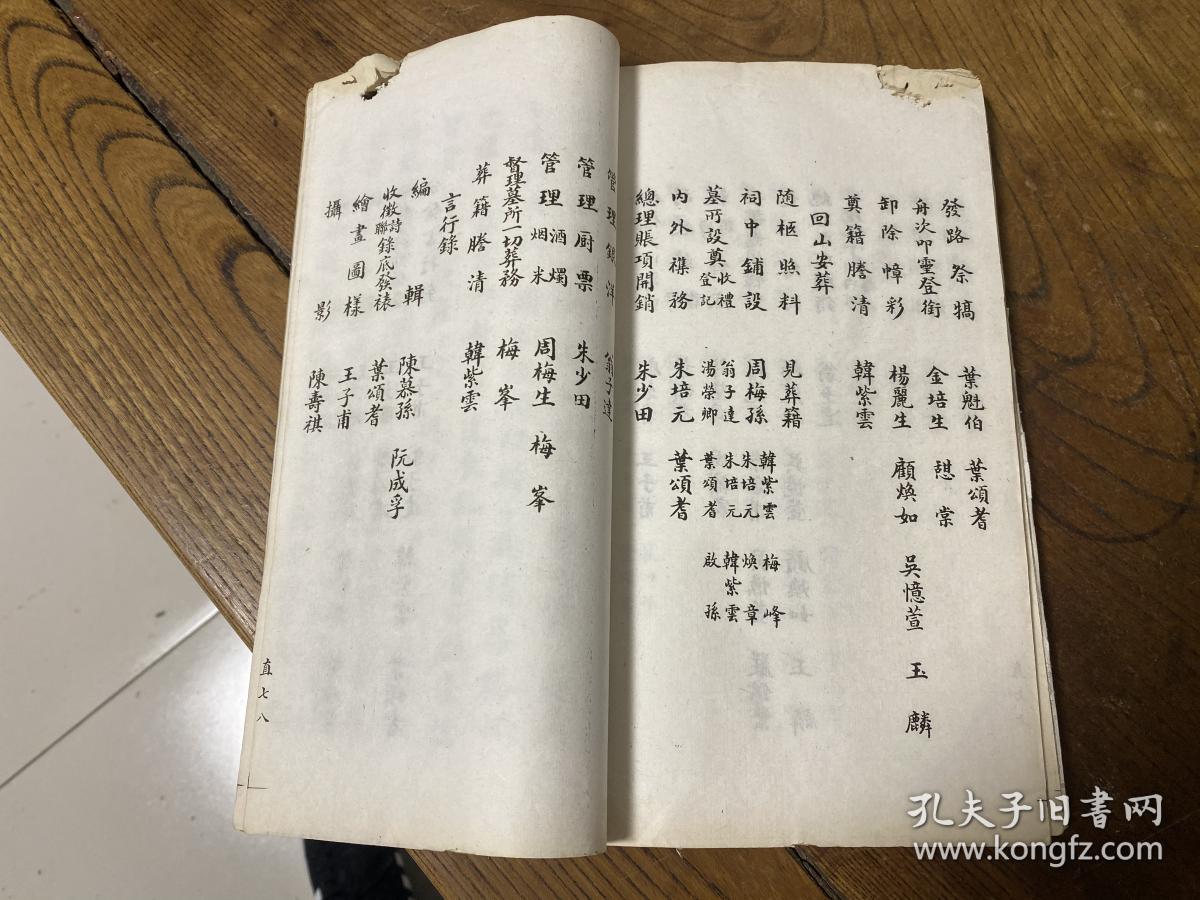 發路祭犒 葉魁伯 葉頌耆
舟次叩靈登銜 金培生 憇棠
卸除幛彩 楊麗生 顧煥如 吳憶萱 玉麟
奠籍謄清 韓紫雲
回山安葬
随柩照料 見葬籍
祠中鋪設 周梅孫 韓紫雲 朱培元 梅峰 煥章
墓所設奠收禮登記 翁子達 湯榮卿 朱培元 葉頌耆 韓紫雲 啟孫
內外襍務 朱培元 葉頌耆
總理賬項開銷 朱少田
管理銀洋 翁子達
管理厨票 朱少田
管理酒燭烟米 周梅生 梅峯
督理墓所一切葬務 梅峯
葬籍謄清 韓紫雲
言行錄
編輯 陳慕孫 阮成孚
收徵詩聯錄底發裱 葉頌耆
繪畫圖樣 王子甫
攝影 陳壽祺
直七八
孔夫子旧书网
www.kongfz.com